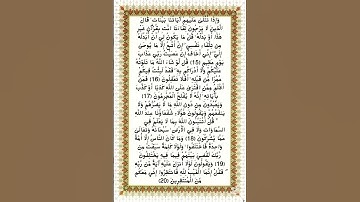 وَإِذَا تُتْلَىٰ عَلَيْهِمْ آيَاتُنَا بَيِّنَاتٍ ۙ قَالَ
الَّذِينَ لَا يَرْجُونَ لِقَاءَنَا ائْتِ بِقُرْآنٍ غَيْرِ
هَٰذَا أَوْ بَدِّلْهُ ۚ قُلْ مَا يَكُونُ لِي أَنْ أُبَدِّلَهُ
مِن تِلْقَاءِ نَفْسِي ۖ إِنْ أَتَّبِعُ إِلَّا مَا يُوحَىٰ
إِلَيَّ ۖ إِنِّي أَخَافُ إِنْ عَصَيْتُ رَبِّي عَذَابَ
يَوْمٍ عَظِيمٍ (15) قُل لَّوْ شَاءَ اللَّهُ مَا تَلَوْتُهُ
عَلَيْكُمْ وَلَا أَدْرَاكُم بِهِ ۖ فَقَدْ لَبِثْتُ فِيكُمْ
عُمُرًا مِّن قَبْلِهِ ۚ أَفَلَا تَعْقِلُونَ (16) فَمَنْ
أَظْلَمُ مِمَّنِ افْتَرَىٰ عَلَى اللَّهِ كَذِبًا أَوْ كَذَّبَ
بِآيَاتِهِ ۚ إِنَّهُ لَا يُفْلِحُ الْمُجْرِمُونَ (17)
وَيَعْبُدُونَ مِن دُونِ اللَّهِ مَا لَا يَضُرُّهُمْ وَلَا
يَنفَعُهُمْ وَيَقُولُونَ هَٰؤُلَاءِ شُفَعَاؤُنَا عِندَ اللَّهِ
ۚ قُلْ أَتُنَبِّئُونَ اللَّهَ بِمَا لَا يَعْلَمُ فِي
السَّمَاوَاتِ وَلَا فِي الْأَرْضِ ۚ سُبْحَانَهُ وَتَعَالَىٰ
عَمَّا يُشْرِكُونَ (18) وَمَا كَانَ النَّاسُ إِلَّا أُمَّةً
وَاحِدَةً فَاخْتَلَفُوا ۚ وَلَوْلَا كَلِمَةٌ سَبَقَتْ مِن
رَّبِّكَ لَقُضِيَ بَيْنَهُمْ فِيمَا فِيهِ يَخْتَلِفُونَ
(19) وَيَقُولُونَ لَوْلَا أُنزِلَ عَلَيْهِ آيَةٌ مِّن رَّبِّهِ
ۖ فَقُلْ إِنَّمَا الْغَيْبُ لِلَّهِ فَانتَظِرُوا إِنِّي مَعَكُم
مِّنَ الْمُنتَظِرِينَ (20)